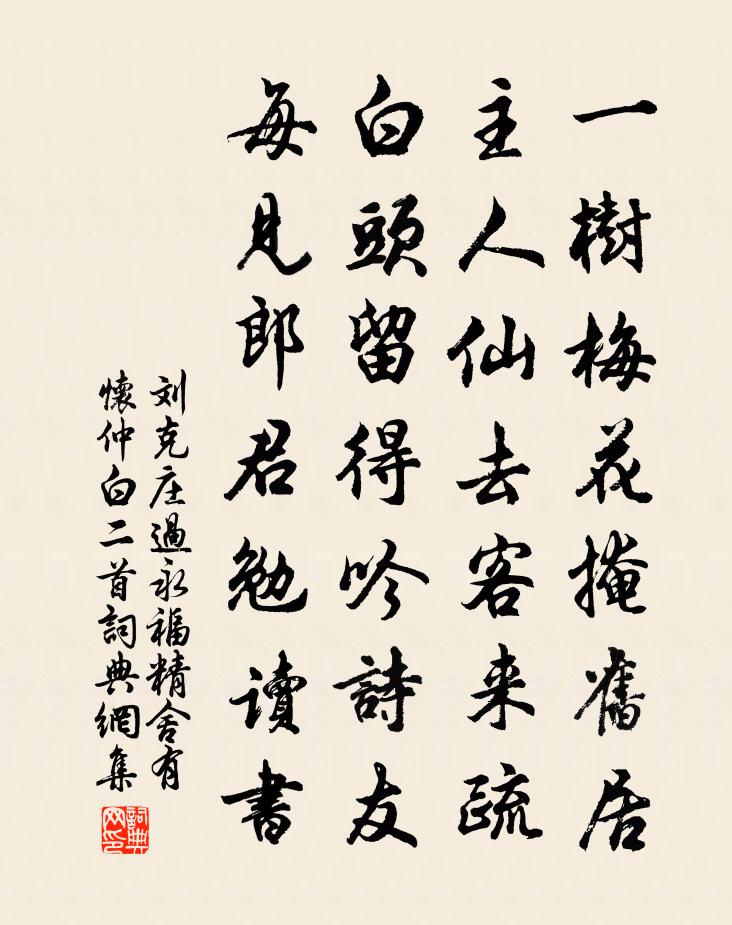 一樹梅花掩舊居
主人仙去客来疏
白頭留得吟詩友
每見郎君勉讀書
刘克庄過永福精舍有
懷仲白二首詞典網集
詞典
网印